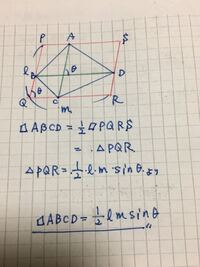 P A S
l B θ D
Q θ C m R
□ABCD = 1/2 □PQRS
= △PQR
△PQR = 1/2・l・m・sinθ より
□ABCD = 1/2 l m sinθ 〃